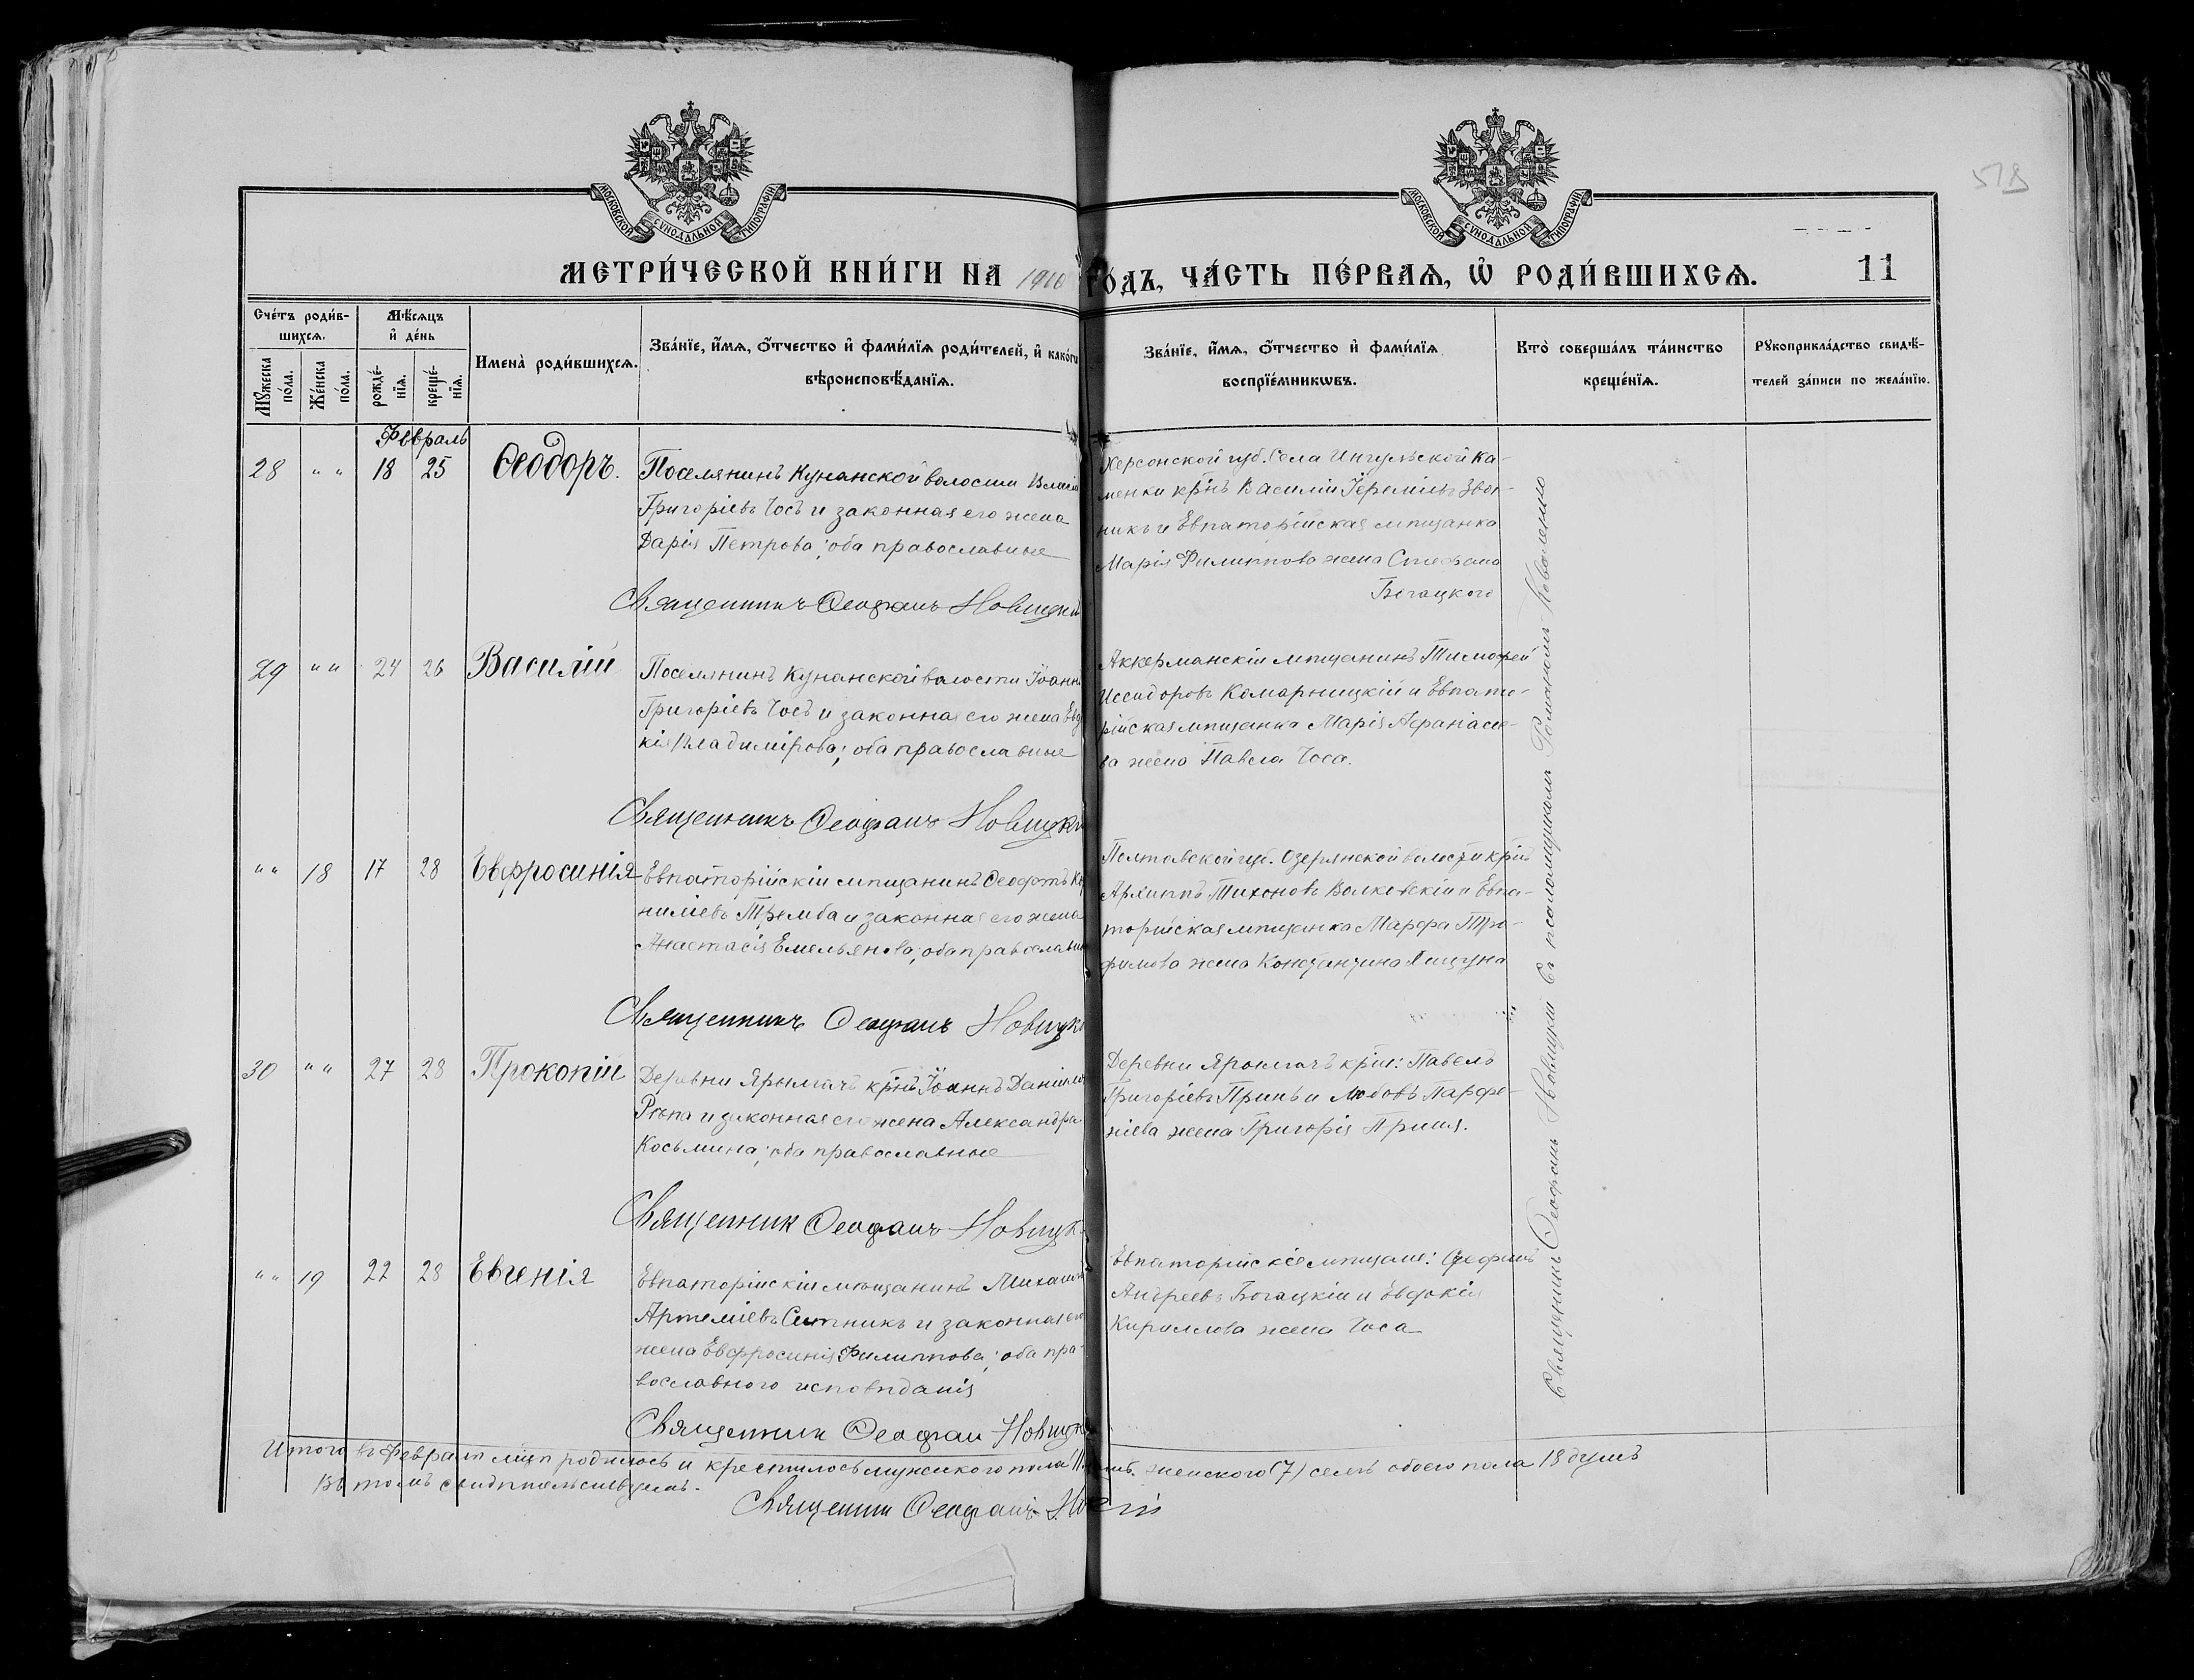 518
МОСКОВСКОЙ СѴНОДАЛЬНОЙ ТИПОГРАФІИ
МОСКОВСКОЙ СѴНОДАЛЬНОЙ ТИПОГРАФІИ
МЕТРИ́ЧЕСКОЙ КНИ́ГИ НА 1910 ГО́ДЪ, ЧА́СТЬ ПЕ́РВАѦ, Ѡ҆ РОДИ́ВШИХСѦ.
11
Сче́тъ роди́в-
шихсѧ.
Мꙋ́жеска по́ла.
Же́нска по́ла.
Мѣ́сѧцъ
и҆ де́нь
рожде́-
нїѧ.
креще́-
нїѧ.
Имена̀ роди́вшихсѧ.
Зва́нїе, и҆́мѧ, ѻ҆́тчество и҆ фами́лїѧ роди́телей, и҆ како́гѡ
вѣроисповѣ́данїѧ.
Зва́нїе, и҆́мѧ, ѻ҆́тчество и҆ фами́лїѧ
воспрїе́мникѡвъ.
Кто̀ соверша́лъ та́инство
креще́нїѧ.
Рꙋкоприкла́дство свидѣ́-
телей за́писи по жела́нїю.
Февраль
28 " " 18 25 Ѳеодоръ.
Поселянинъ Кунанской волости
Григоріевъ Чосъ и законная его жена
Дарія Петрова; оба православные
Священникъ Ѳеофанъ Новицкій
Херсонской губ. Села Ингульской Ка-
менки крнъ Василій Іереміевъ
никъ и Евпаторійская мѣщанка
Марія Филиппова жена Стефана
Богацкого
29 " " 24 26 Василій
Поселянинъ Кунанской волости Іоаннъ
Григоріевъ Чосъ и законная его жена Евдо
кія Владимірова; оба православные
Священникъ Ѳеофанъ Новицкі
Аккерманскій мѣщанинъ Тимофей
Исидоровъ Комарницкій и Евпато-
рійская мѣщанка Марія Аѳанасье-
ва жена Павла Чоса.
" " 18 17 28 Евфросинія
Евпаторійскій мѣщанинъ Ѳеофанъ Кор
ниліевъ Тремба и законная его жена
Анастасія Емельянова; оба православны
Священникъ Ѳеофанъ Новицкі
Полтавской губ. Озерянской волости крнъ
Архиппъ Тихоновъ Волковскій и Евпа-
торійская мѣщанка Марфа Тро-
фимова жена Константина Ящуна
30 " " 27 28 Прокопій
Деревни Ярылгачъ крнъ Іоаннъ Даніиловъ
Рѣпа и законная его жена Александра
Косьмина; оба православные
Священник Ѳеофанъ Новицк
Деревни Ярылгачъ крне: Павелъ
Григоріевъ Принь и Любовь Парфе-
ніева жена Григорія Приня.
" " 19 22 28 Евгенія
Евпаторійскій мѣщанинъ Михаилъ
Артеміевъ Ситникъ и законная его
жена Евфросинія Филиппова; оба пра-
вославного исповѣданія
Священник Ѳеофан Новицк
Евпаторійскіе мѣщане: Стефанъ
Андреевъ Богацкій и Евдокія
Кириллова жена Чоса
Священникъ Ѳеофанъ Новицкій съ псаломщикомъ Романомъ Коваленко
Итого въ Февралѣ мцѣ родилось и крестилось мужского пола 11 женского (7) семь обоего пола 18 душъ
Въ томъ свидѣтельствуемъ.
Священник Ѳеофанъ